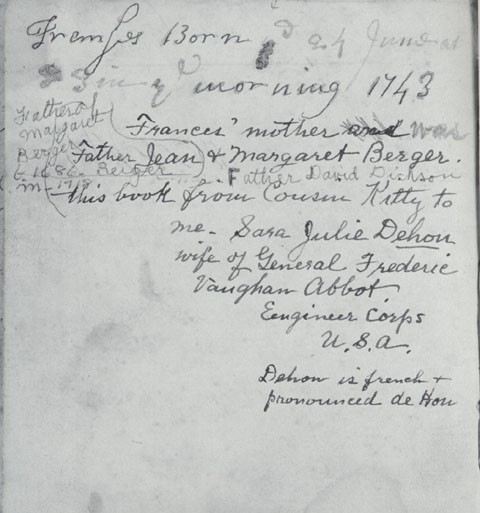 Born 24 June at
in yᵉ morning 1743
Father of
Margaret
Berger
Frances' mother was
Father Jean & Margaret Berger.
Berger
m- Father David Dickson
this book from Cousin Kitty to
me - Sara Julie Dehon
wife of General Frederic
Vaughan Abbot
Engineer Corps
U.S.A.
Dehon is french +
pronounced de Hon